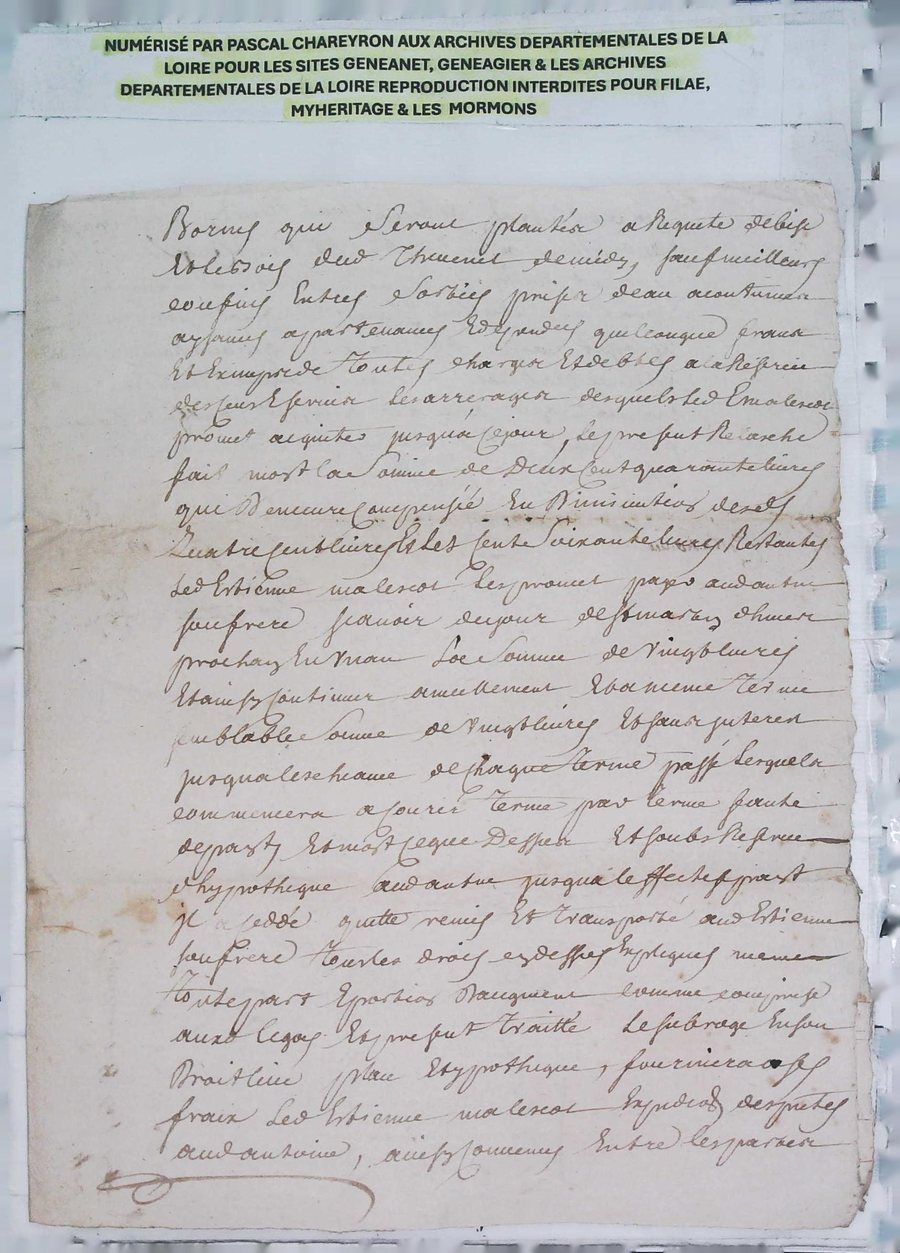 NUMÉRISÉ PAR PASCAL CHAREYRON AUX ARCHIVES DEPARTEMENTALES DE LA
LOIRE POUR LES SITES GENEANET, GENEAGIER & LES ARCHIVES
DEPARTEMENTALES DE LA LOIRE REPRODUCTION INTERDITES POUR FILAE,
MYHERITAGE & LES MORMONS
Bornes qui seront plantées a Requete debise
dud demidy, sauf meilleurs
confins Entrées sorties prises deau acoutumées
aysances apartenances quelconque francs
Et Exempts de toutes charges Et debtes ala Reserve
des Cens Eservice les arrerages desquels led Malescot
promet aquiter jusqua ce jour, le present Relaschè
fait mot la Somme de Deux Cent quarante livres
qui Demeure Compensée En Diminution desd
Quatre Cent livres Et les Cent Soixante livres Restantes
led Estienne malescot les promet payer aud antoine
son frere scavoir dujour de st martin dhiver
prochain En Un an La Somme de Vingt livres
Et ainsy Continuer annuellement Et a meme terme
semblable Somme de Vingt livres Et sans interest
jusqua leschance de Chaque terme passé lesquels
commencera a Courir terme par terme faute
de payt Et mot ce que Dessus Et soubs Reserve
dhypotheque aud antoine jusqua leffectif payt
jl a cedde quitte remis Et transporté aud Estienne
son frere tous les droits cy dessus Expliqués meme
toute part Eportion Daugment comme comprise
auxd legas Et present traitté le subroge En son
Droit lieu place Et hypotheque, fournira a ses
frais led Estienne malescot Expedion des pntes
aud antoine, ainsy Convenu Entre les parties